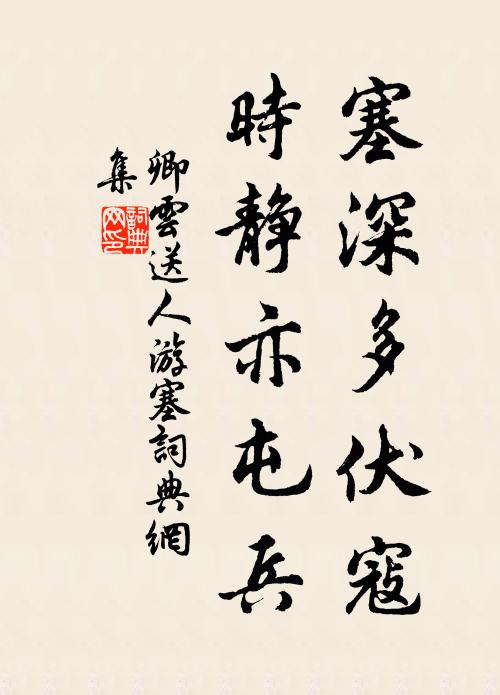 塞深多伏寇
時靜亦屯兵
卿雲送人游塞詞典網
集
詞典网印